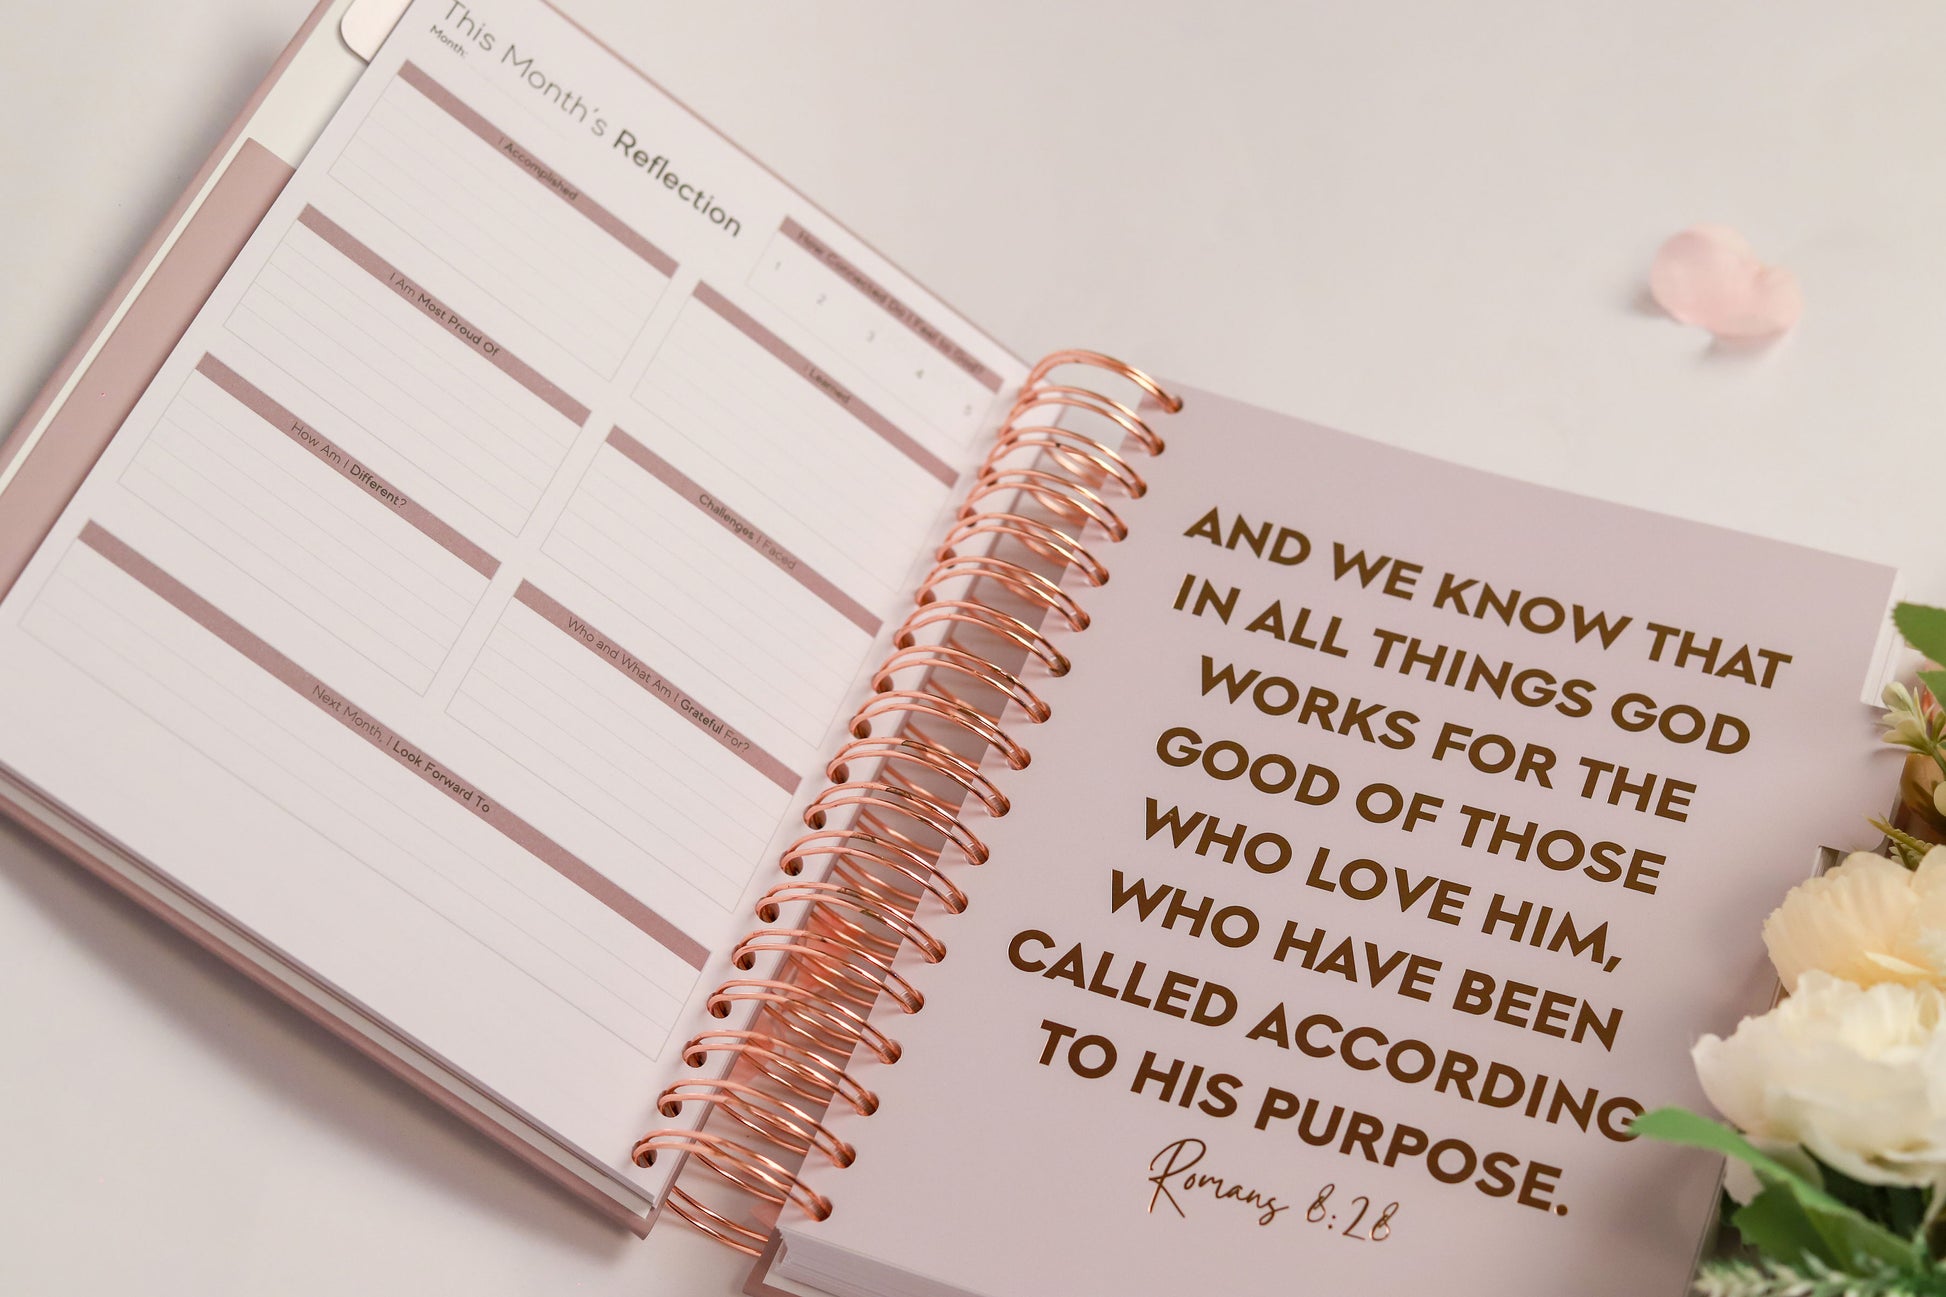 This Month's Reflection
Month:
How Connected Did I Feel to God?
1 2 3 4 5
I Accomplished
I Learned
I Am Most Proud Of
Challenges I Faced
How Am I Different?
Who and What Am I Grateful For?
Next Month, I Look Forward To
AND WE KNOW THAT
IN ALL THINGS GOD
WORKS FOR THE
GOOD OF THOSE
WHO LOVE HIM,
WHO HAVE BEEN
CALLED ACCORDING
TO HIS PURPOSE.
Romans 8:28